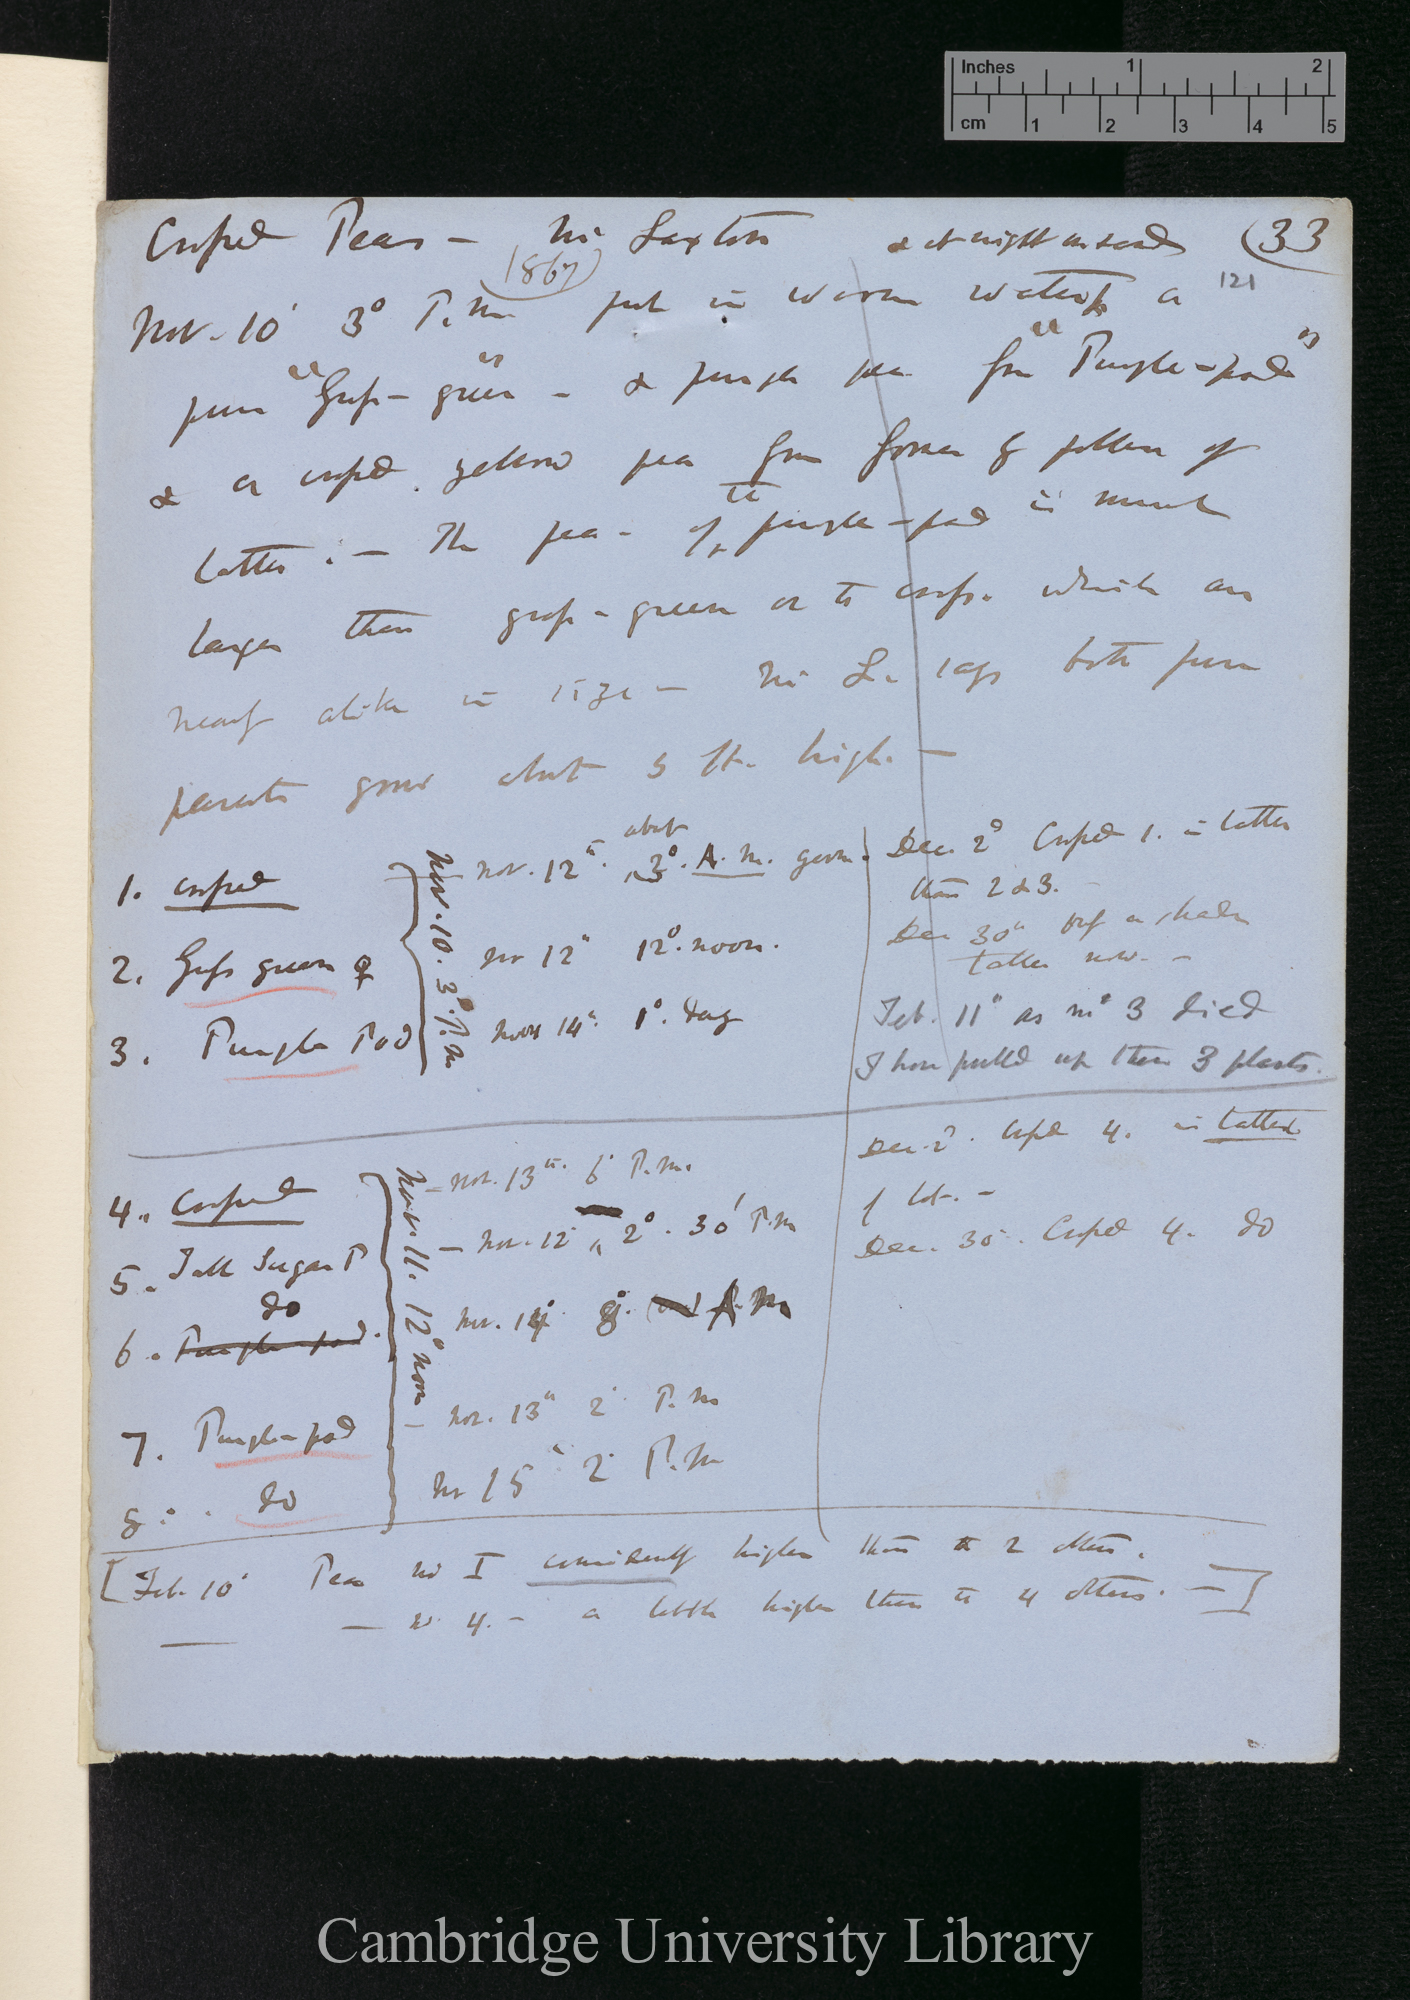 Inches 1 2
cm 1 2 3 4 5
Crossed Peas — Mr Laxton & at night in sand (33
(1867) 121
Nov. 10' 3° P.m put in warm water a
pure "Grass-green" - & purple pea from "Purple-pod"
& a crossed yellow pea from former by pollen of
latter. — The pea of the purple-pod is much
larger than grass-green or the cross. which are
nearly alike in size — Mr L. says both pure
parents grow about 5 ft. high. —
Nov. 10. 3° P. m
1. crossed — Nov. 12th. about 3°. A. m. germ.
2. Grass green ♀ Nov 12th 12°. noon.
3. Purple Pod Noon 14th. 1°. day
Dec. 2d Crossed 1. is taller
than 2 & 3. —
Dec 30th but a shade
taller now. —
Feb. 11th as no 3 died
I have pulled up these 3 plants.
Nov. 11. 12° noon
4. Crossed — Nov. 13th. 6' P. m.
5. Tall Sugar P — Nov. 12 2°. 30' P.m
do
6. Purple pod. Nov. 14 8°. A. m
7. Purple pod — Nov. 13th 2' P. m
8. do Nov 15th 2' P. m
Dec. 2d. Crossed 4. is tallest
of lot. —
Dec. 30. Crossed 4. do
[Feb. 10' Peas no I considerably higher than the 2 others.
— no 4. — a little higher than the 4 others. —]
Cambridge University Library